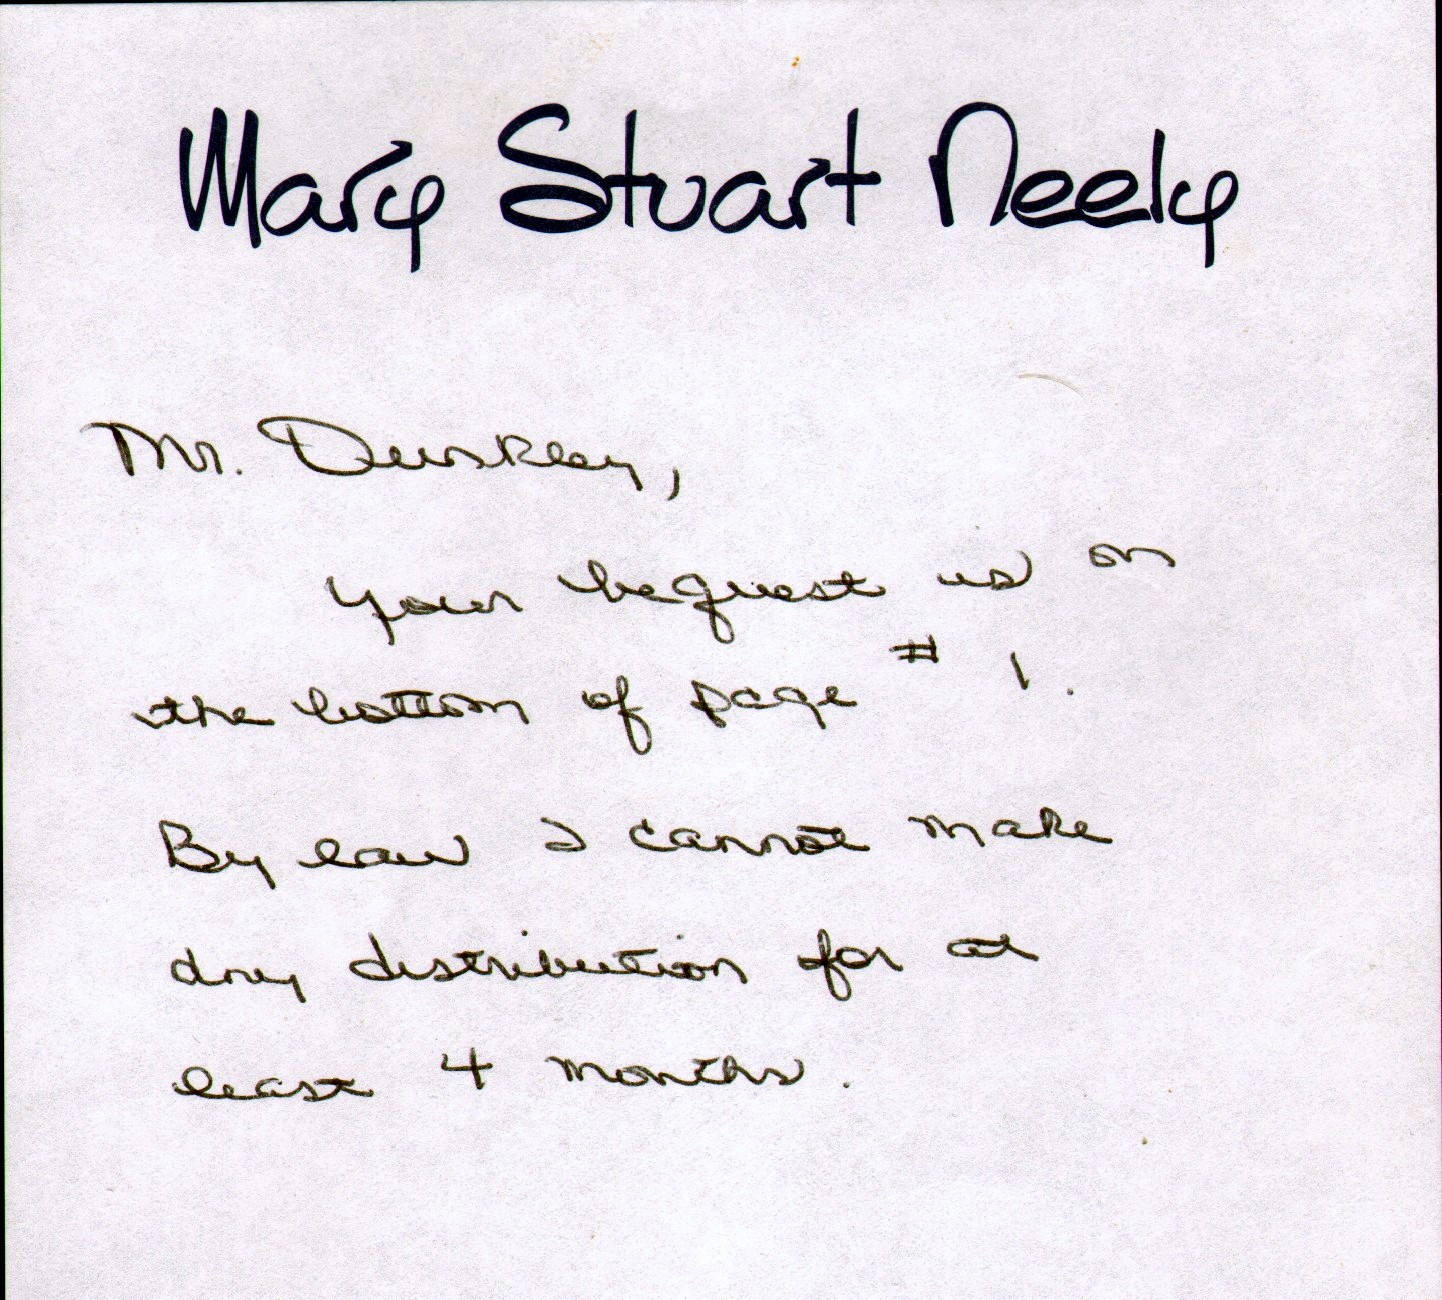 Mary Stuart Neely
Mr. Dunkley,
Your bequest is on
the bottom of page # 1.
By law I cannot make
any distribution for at
least 4 months.